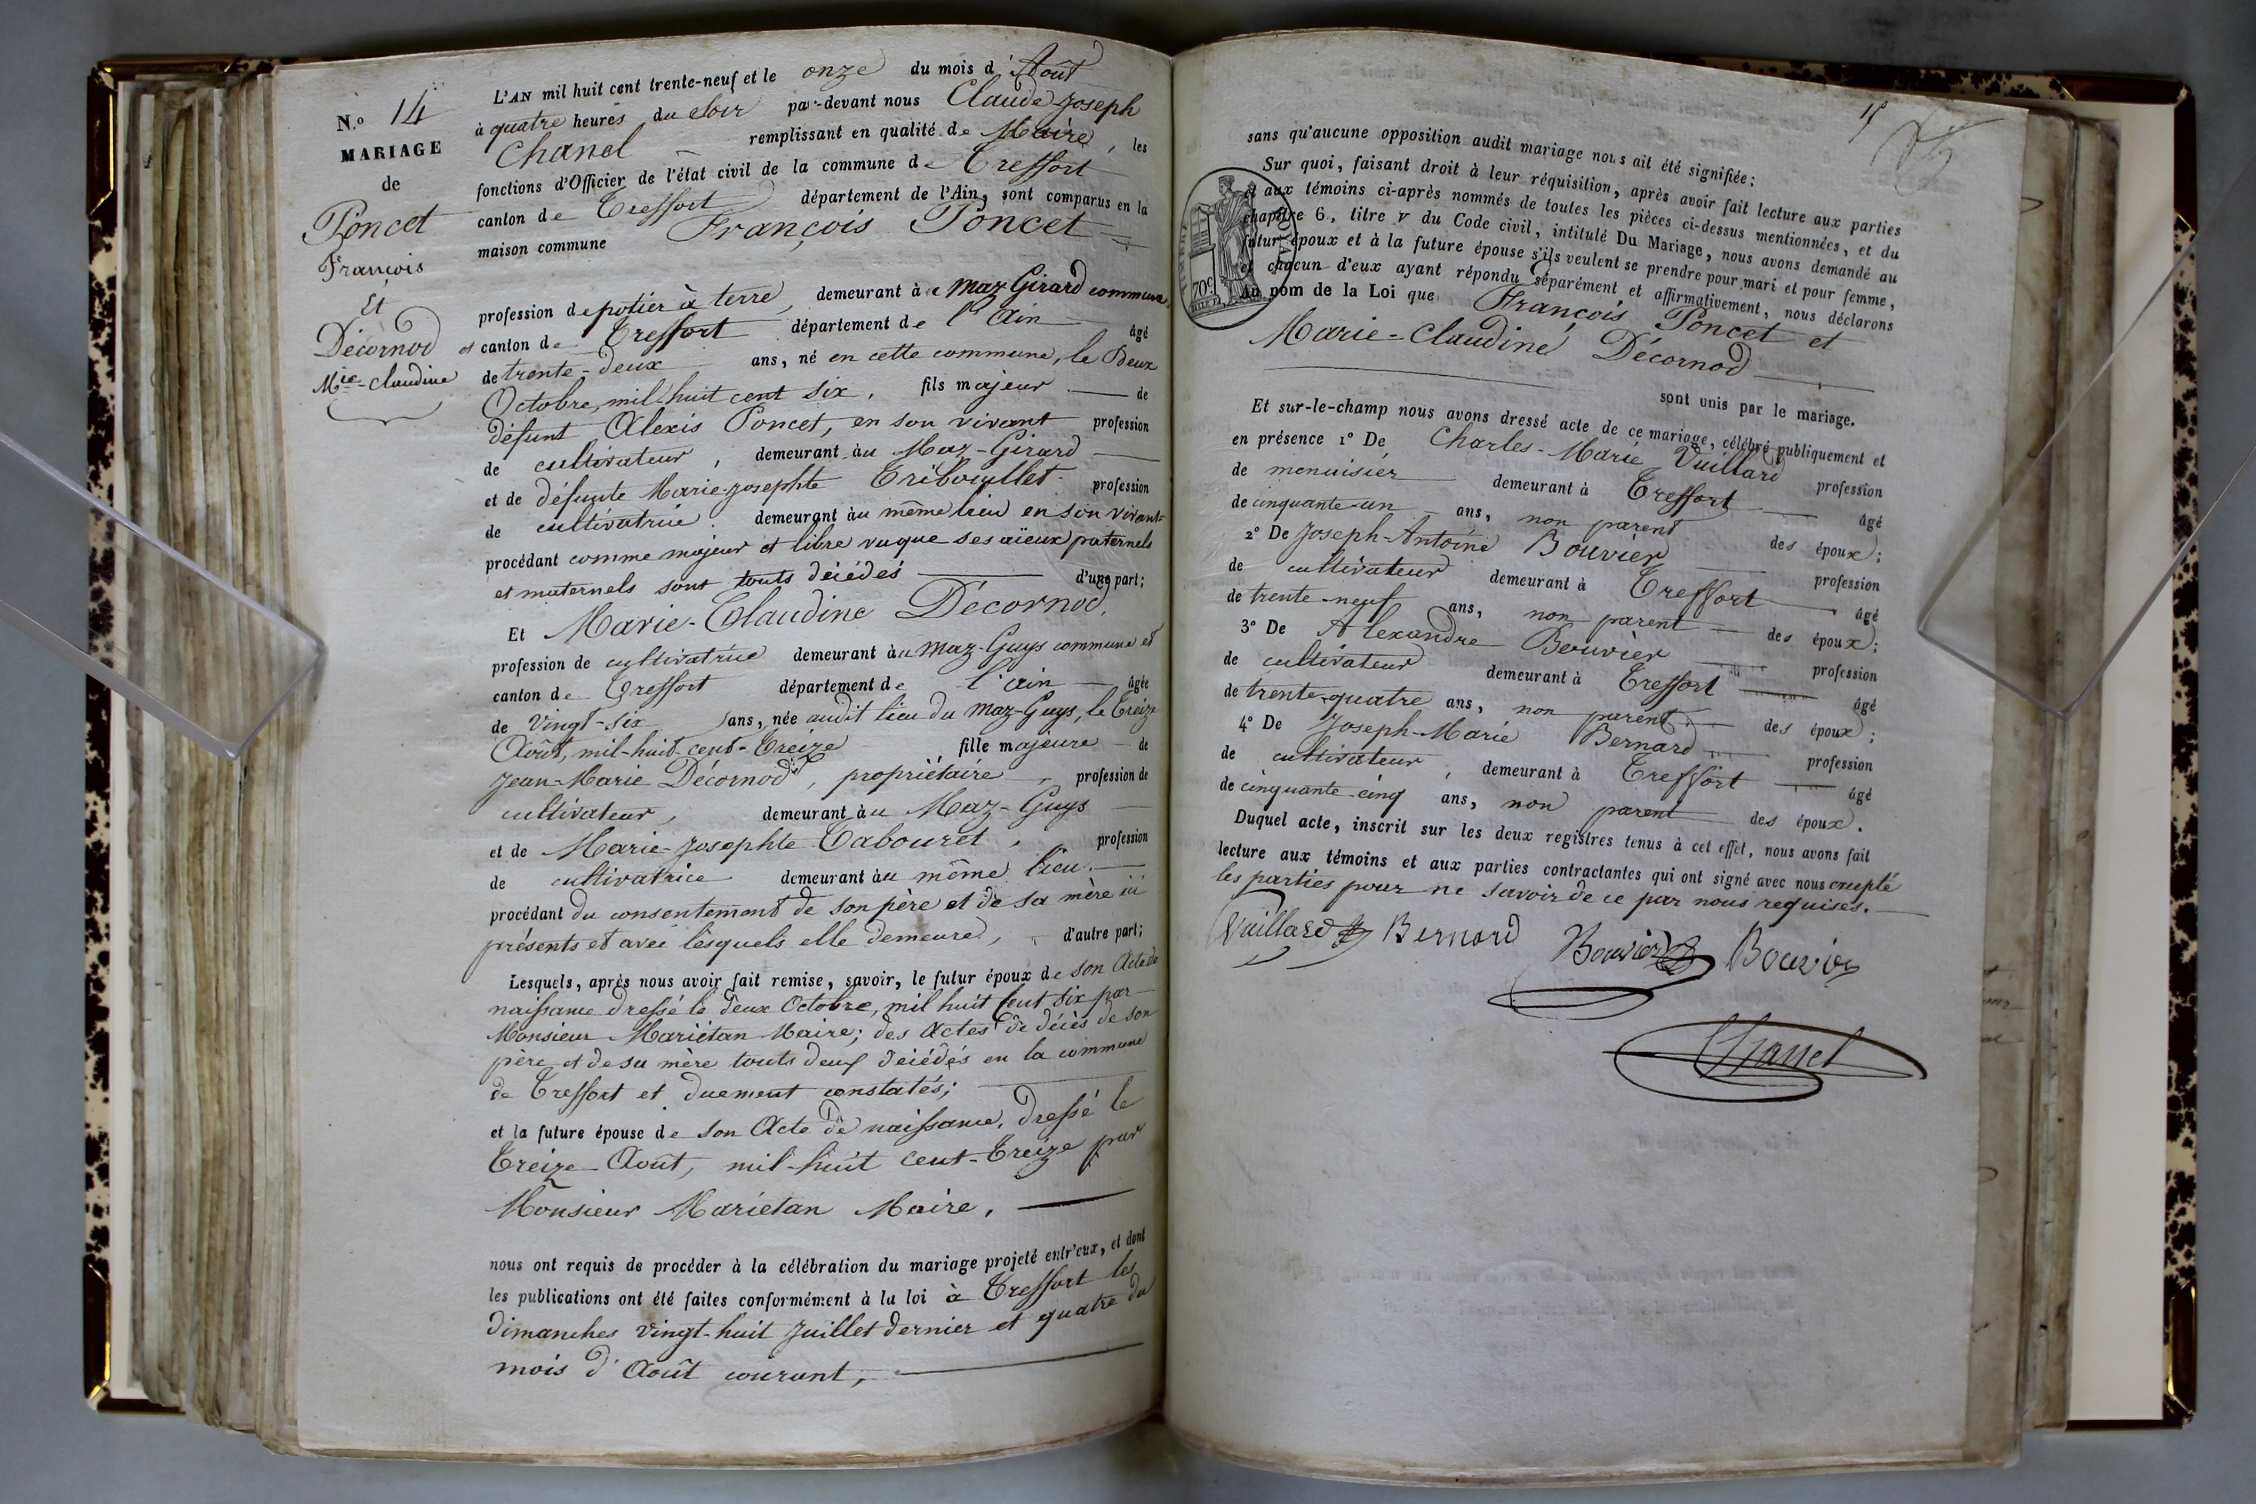 N.º 14
MARIAGE
de
Poncet
François
Et
Décornod
Mie-Claudine
L'AN mil huit cent trente-neuf et le onze du mois d'Août
à quatre heures du soir par-devant nous Claude-Joseph
Chanel remplissant en qualité de Maire, les
fonctions d'Officier de l'état civil de la commune de Treffort
canton de Treffort département de l'Ain, sont comparus en la
maison commune François Poncet
profession de potier à terre, demeurant au Maz Girard commune
et canton de Treffort département de l'Ain âgé
de trente-deux ans, né en cette commune, le Deux
Octobre, mil-huit cent six, fils majeur de
défunt Alexis Poncet, en son vivant profession
de cultivateur, demeurant au Maz-Girard
et de défunte Marie-Josephte Tribouillet profession
de cultivatrice. demeurant au même lieu en son vivant
procédant comme majeur et libre vu que ses aïeux paternels
et maternels sont touts décédés d'une part;
Et Marie-Claudine Décornod,
profession de cultivatrice demeurant au Maz-Guys commune et
canton de Treffort département de l'Ain âgée
de vingt-six ans, née audit lieu du Maz-Guys, le Treize
Août, mil-huit-cent-Treize fille majeure de
Jean-Marie Décornod, propriétaire, profession de
cultivateur, demeurant au Maz-Guys
et de Marie-Josephte Tabouret, profession
de cultivatrice demeurant au même lieu.
procédant du consentement de son père et de sa mère ici
présents et avec lesquels elle demeure, d'autre part;
Lesquels, après nous avoir fait remise, savoir, le futur époux de son Acte de
naissance dressé le deux Octobre, mil huit cent six par
Monsieur Mariétan Maire; des Actes de décès de son
père et de sa mère touts deux décédés en la commune
de Treffort et duement constatés;
et la future épouse de son Acte de naissance, dressé le
Treize Août, mil-huit cent-Treize par
Monsieur Mariétan Maire,
nous ont requis de procéder à la célébration du mariage projeté entr'eux, et dont
les publications ont été faites conformément à la loi à Treffort les
dimanches vingt-huit Juillet dernier et quatre du
mois d'Août courant,
sans qu'aucune opposition audit mariage nous ait été signifiée;
Sur quoi, faisant droit à leur réquisition, après avoir fait lecture aux parties
et aux témoins ci-après nommés de toutes les pièces ci-dessus mentionnées, et du
chapitre 6, titre v du Code civil, intitulé Du Mariage, nous avons demandé au
futur époux et à la future épouse s'ils veulent se prendre pour mari et pour femme,
et chacun d'eux ayant répondu séparément et affirmativement, nous déclarons
au nom de la Loi que François Poncet et
Marie-Claudine Décornod
sont unis par le mariage.
Et sur-le-champ nous avons dressé acte de ce mariage, célébré publiquement et
en présence 1º De Charles-Marie Vuillard profession
de menuisier demeurant à Treffort âgé
de cinquante-un ans, non parent des époux;
2º De Joseph-Antoine Bouvier profession
de cultivateur demeurant à Treffort âgé
de trente-neuf ans, non parent des époux;
3º De Alexandre Bouvier profession
de cultivateur demeurant à Treffort âgé
de trente-quatre ans, non parent des époux;
4º De Joseph-Marie Bernard profession
de cultivateur, demeurant à Treffort âgé
de cinquante-cinq ans, non parent des époux.
Duquel acte, inscrit sur les deux registres tenus à cet effet, nous avons fait
lecture aux témoins et aux parties contractantes qui ont signé avec nous excepté
les parties pour ne savoir de ce par nous requises.
Vuillard Bernard Bouvier Bouvier
Chanel
TIMBRE ROYAL
70c